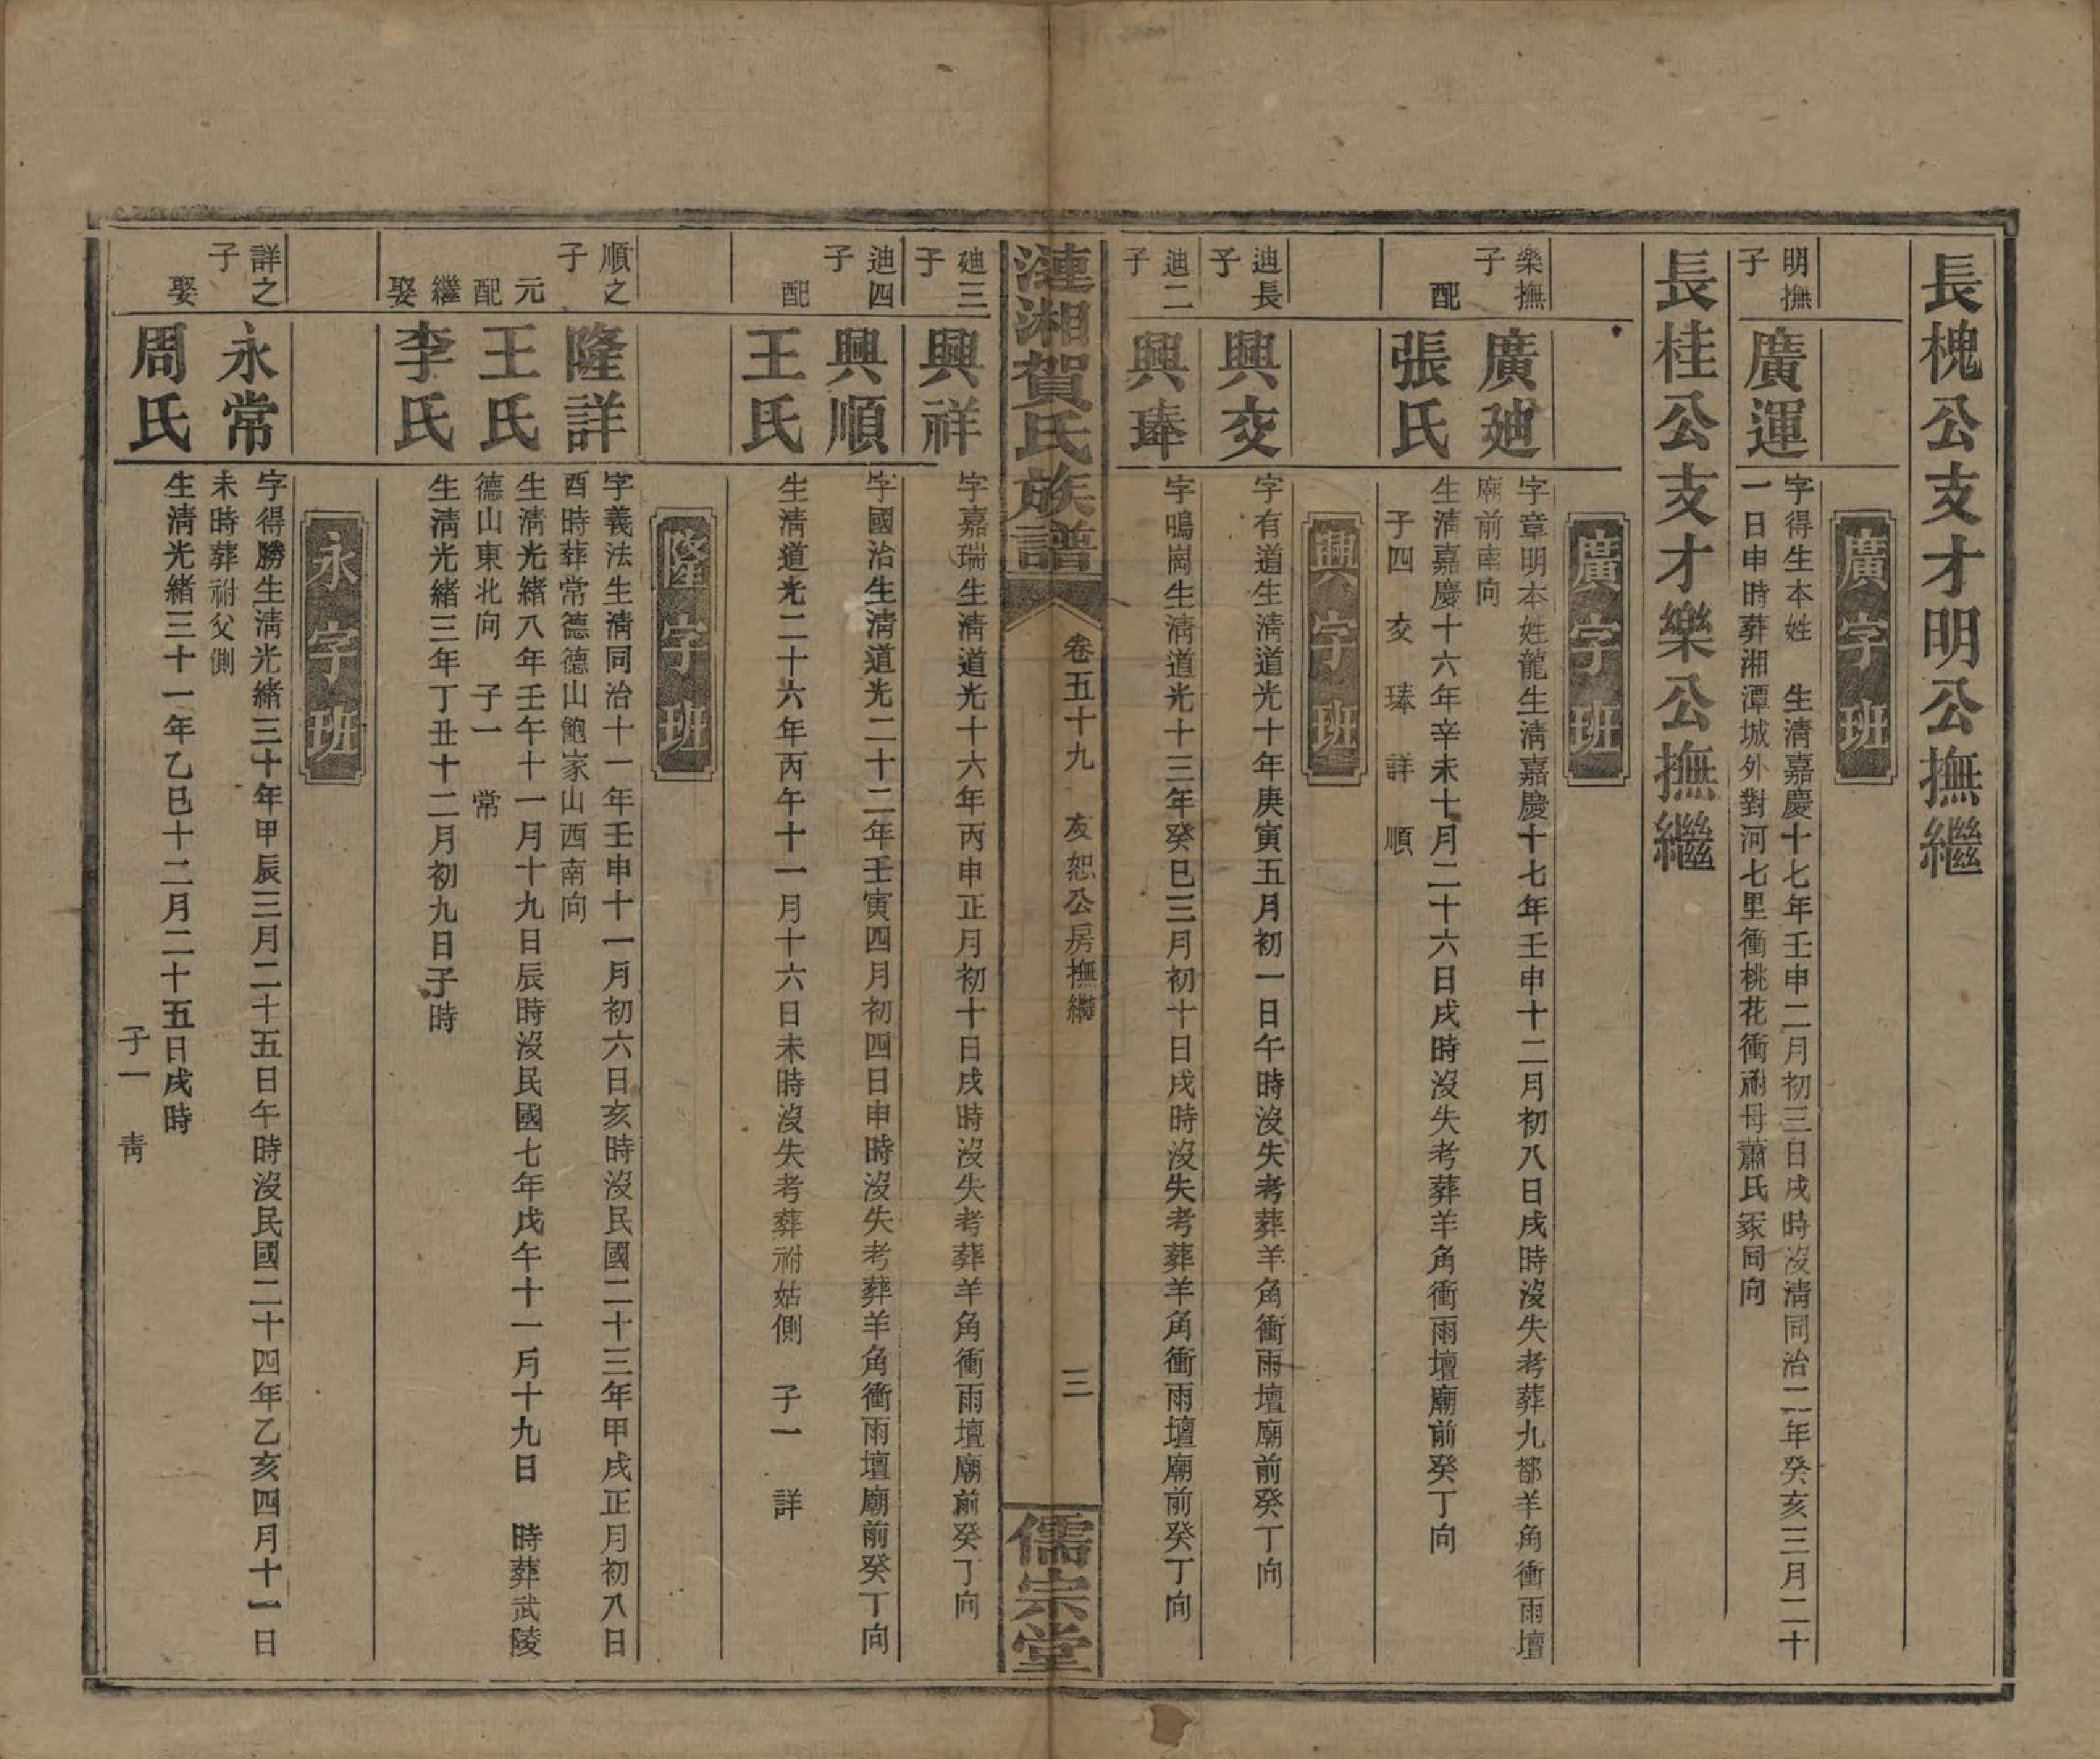 長槐公支才明公撫繼
廣字班
明撫子
廣運
字得生本姓　生淸嘉慶十七年壬申二月初三日戌時沒淸同治二年癸亥三月二十
一日申時葬湘潭城外對河七里衝桃花衝祔母蕭氏冢同向
長桂公支才樂公撫繼
廣字班
樂撫子
廣廸
字章明本姓龍生淸嘉慶十七年壬申十二月初八日戌時沒失考葬九都羊角衝雨壇
廟前南向
配
張氏
生淸嘉慶十六年辛未十月二十六日戌時沒失考葬羊角衝雨壇廟前癸丁向
子四　交　琫　詳　順
興字班
迪長子
興交
字有道生淸道光十年庚寅五月初一日午時沒失考葬羊角衝雨壇廟前癸丁向
迪二子
興琫
字鳴崗生淸道光十三年癸巳三月初十日戌時沒失考葬羊角衝雨壇廟前癸丁向
漣湘賀氏族譜
卷五十九　友恕公房撫繼
三
儒宗堂
廸三子
興祥
字嘉瑞生淸道光十六年丙申正月初十日戌時沒失考葬羊角衝雨壇廟前癸丁向
迪四子
興順
字國治生淸道光二十二年壬寅四月初四日申時沒失考葬羊角衝雨壇廟前癸丁向
配
王氏
生淸道光二十六年丙午十一月十六日未時沒失考葬祔姑側　子一　詳
隆字班
順之子
隆詳
字義法生淸同治十一年壬申十一月初六日亥時沒民國二十三年甲戌正月初八日
酉時葬常德德山鮑家山西南向
元配
王氏
生淸光緒八年壬午十一月十九日辰時沒民國七年戊午十一月十九日　時葬武陵
德山東北向　子一　常
繼娶
李氏
生淸光緒三年丁丑十二月初九日子時
永字班
詳之子
永常
字得勝生淸光緒三十年甲辰三月二十五日午時沒民國二十四年乙亥四月十一日
未時葬祔父側
娶
周氏
生淸光緒三十一年乙巳十二月二十五日戌時
子一　靑